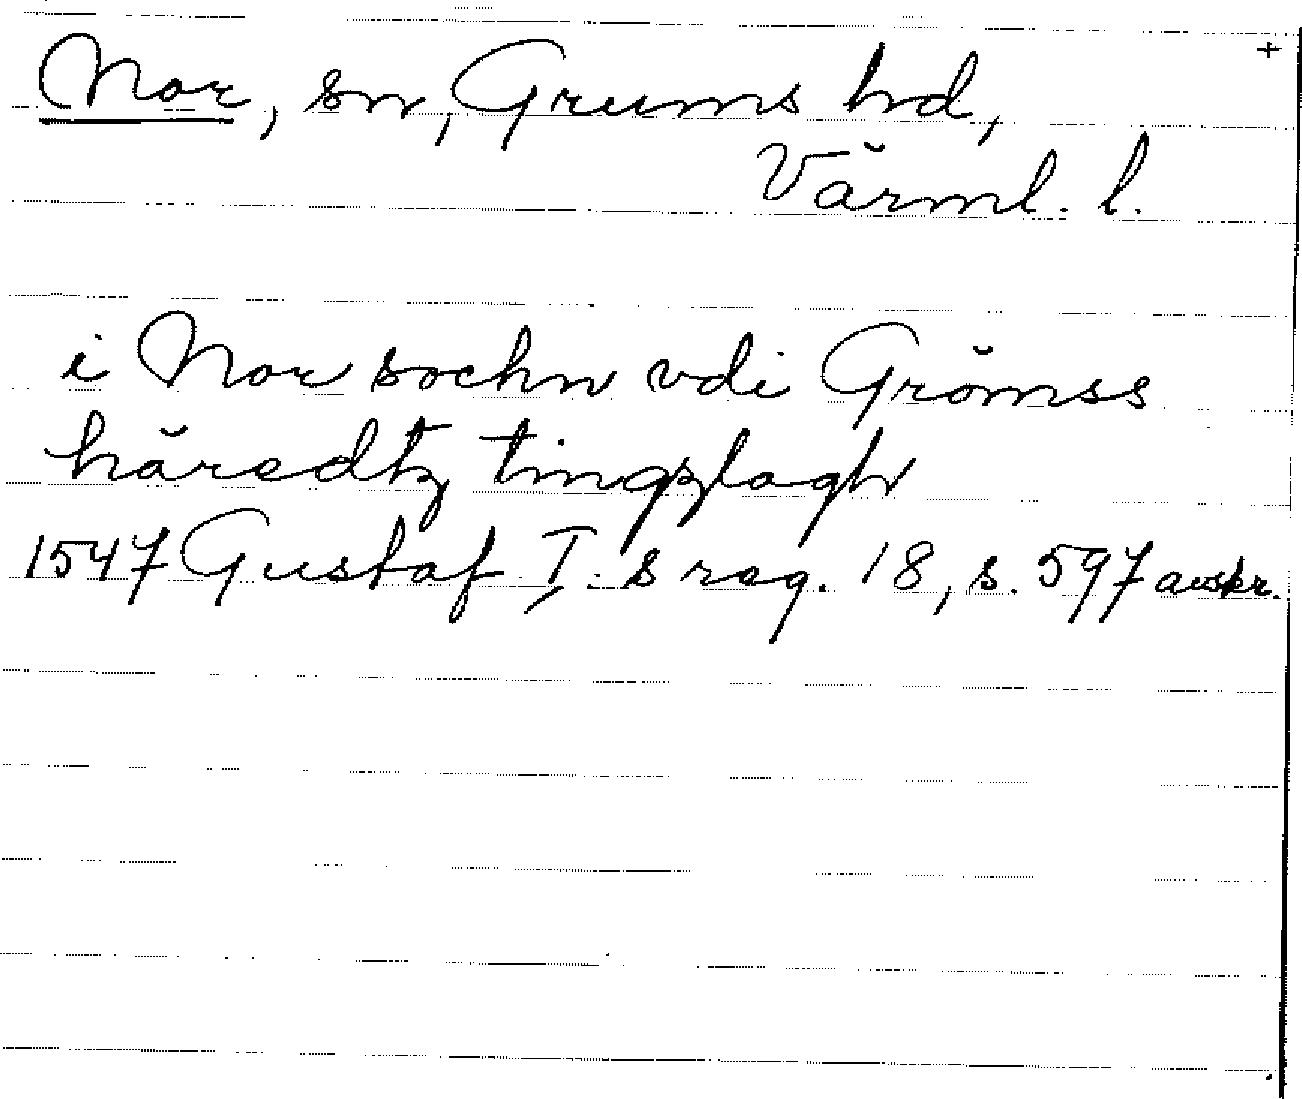 Nor, sn, Grums hd, +
Värml. l.
i Nor sochn vdi Grömss
häredtz tingzlagh
1547 Gustaf I:s reg. 18, s. 597 avskr.